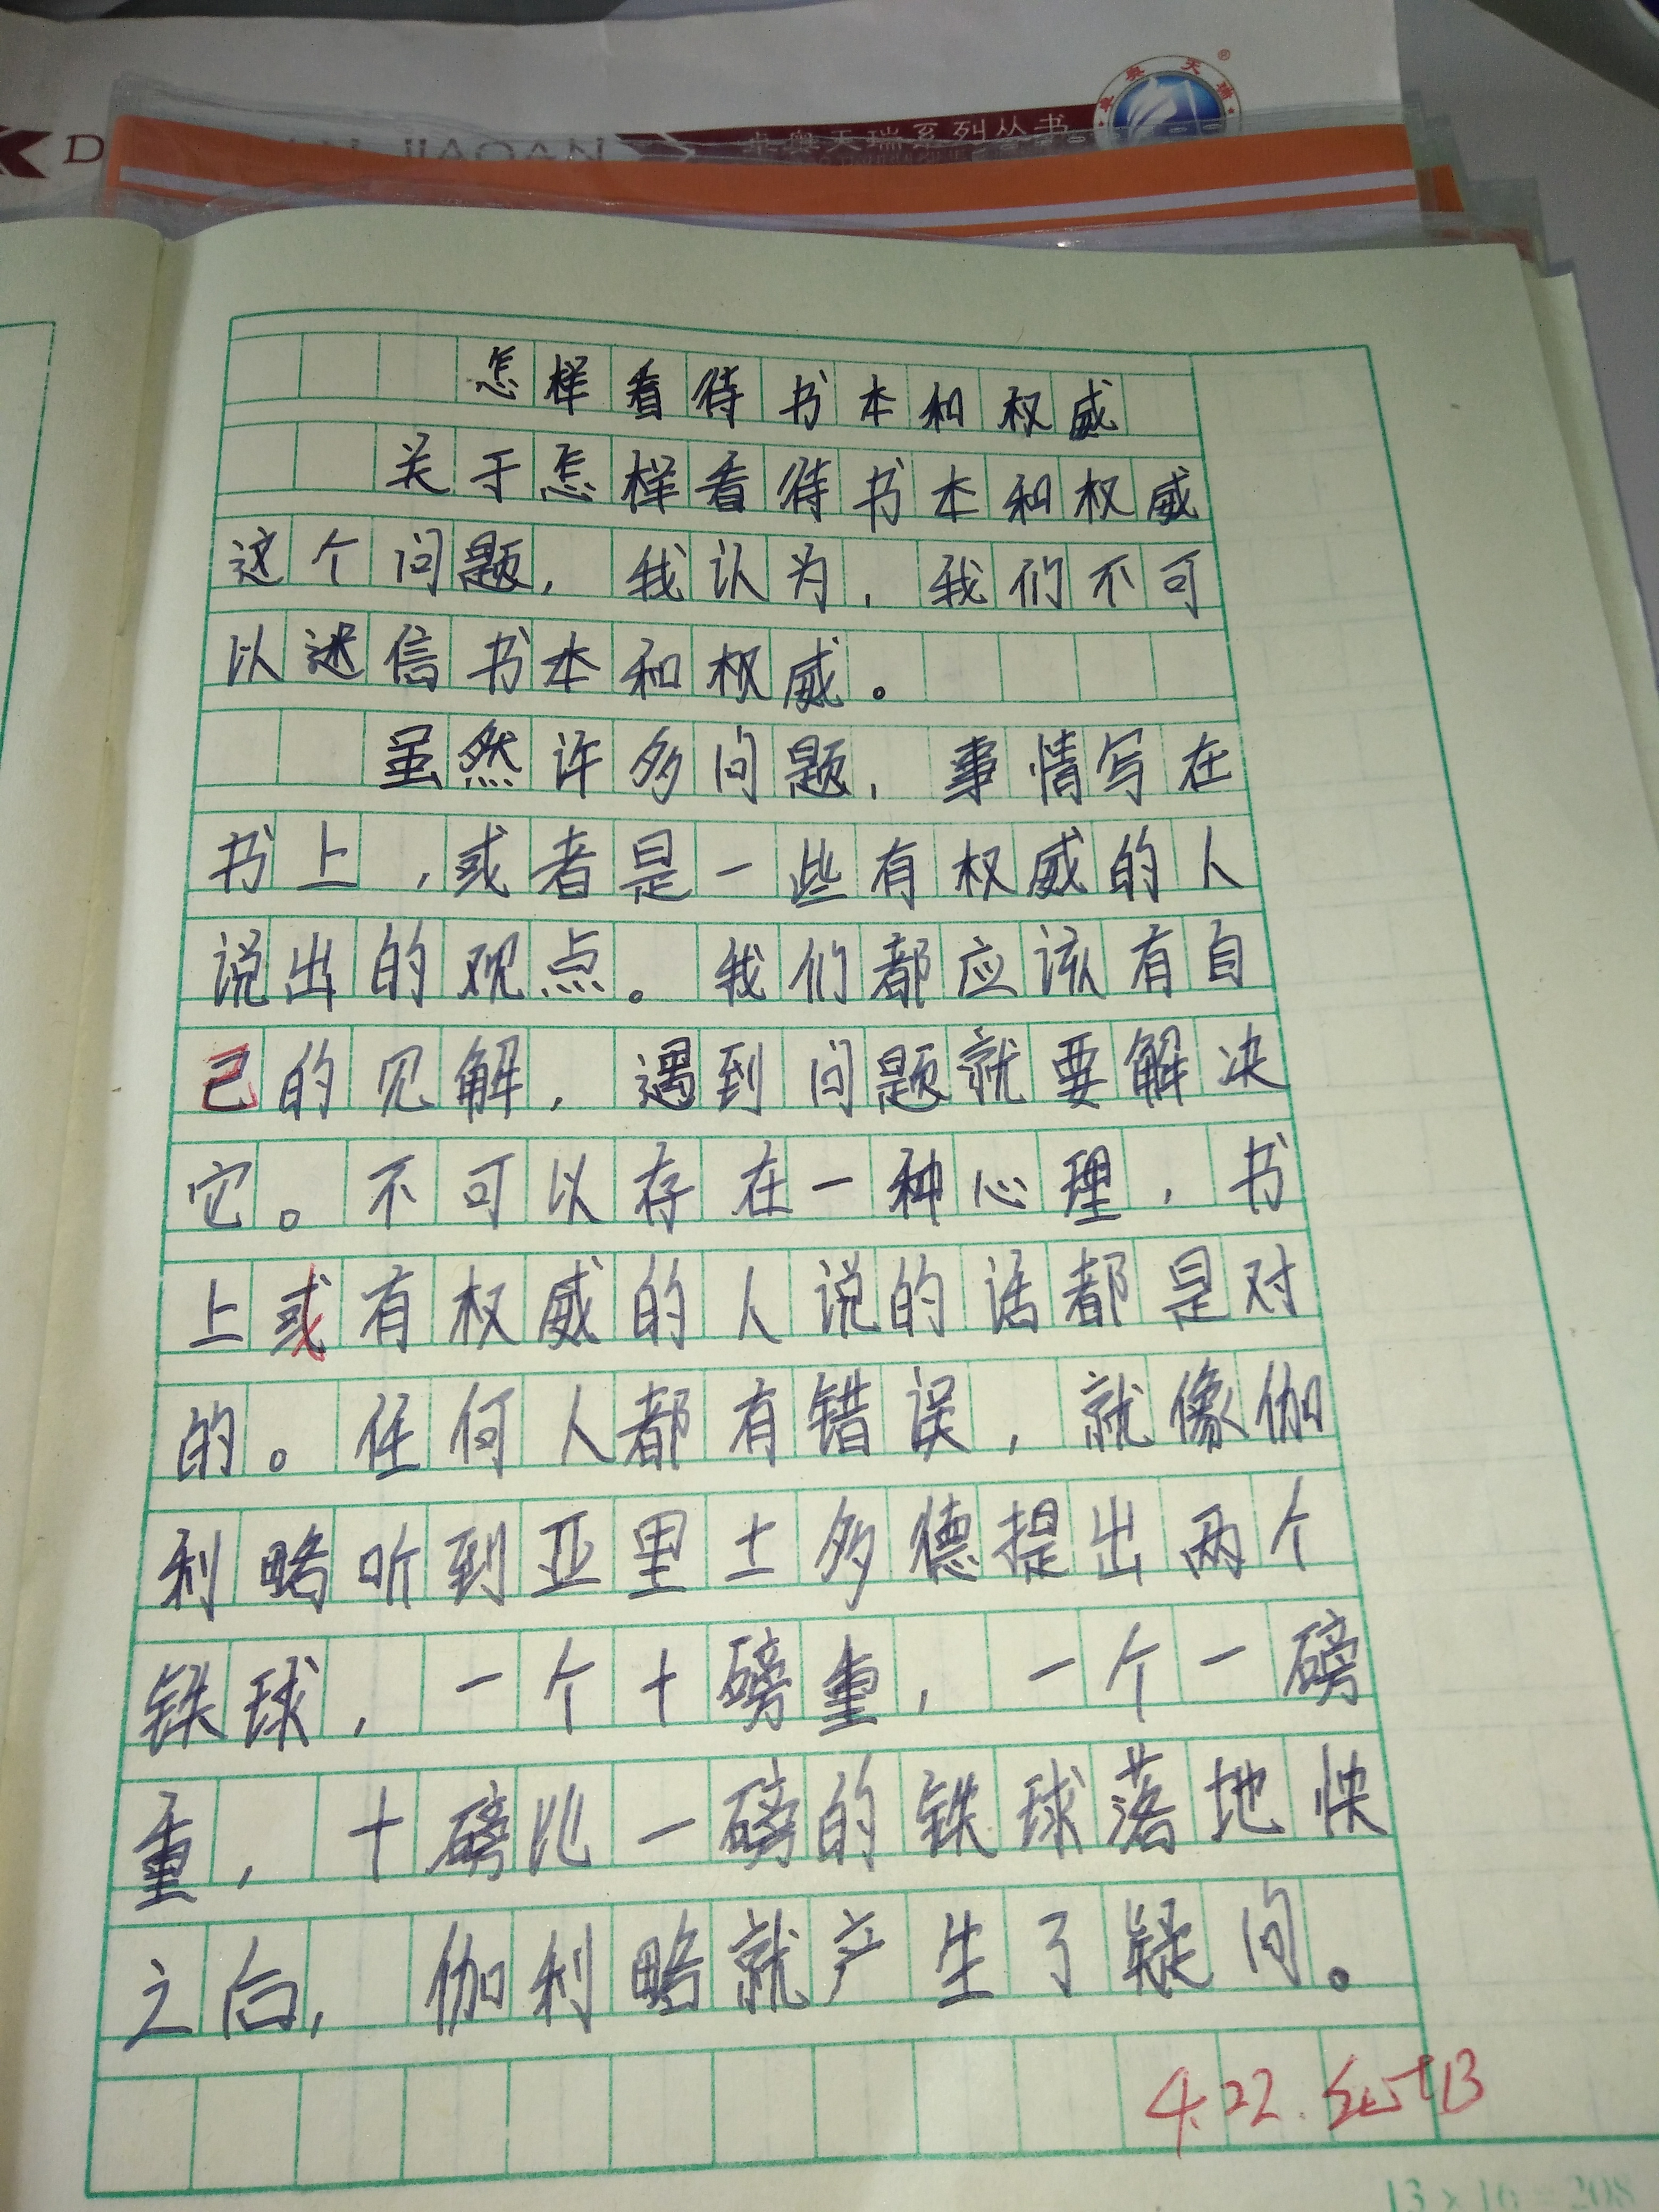 JIAOAN
卓奥天瑞系列丛书
怎样看待书本和权威
关于怎样看待书本和权威
这个问题，我认为，我们不可
以迷信书本和权威。
虽然许多问题，事情写在
书上，或者是一些有权威的人
说出的观点。我们都应该有自
己的见解，遇到问题就要解决
它。不可以存在一种心理，书
上或有权威的人说的话都是对
的。任何人都有错误，就像伽
利略听到亚里士多德提出两个
铁球，一个十磅重，一个一磅
重，十磅比一磅的铁球落地快
之后，伽利略就产生了疑问。
4.22.
13×16=208